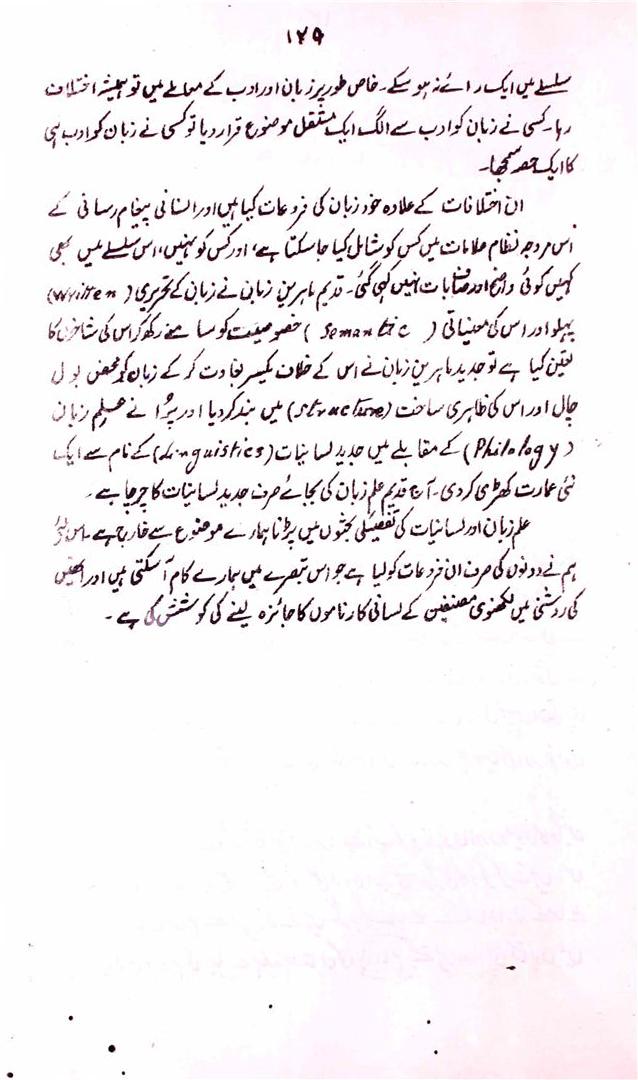 ۱۲۹
سلسلے میں ایک رائے نہ ہو سکے۔ خاص طور پر زبان اور ادب کے معاملے میں تو ہمیشہ اختلاف
رہا۔ کسی نے زبان کو ادب سے الگ ایک مستقل موضوع قرار دیا تو کسی نے زبان کو ادب ہی
کا ایک حصہ سمجھا۔
ان اختلافات کے علاوہ خود زبان کی فروعات کیا ہیں اور انسانی پیغام رسانی کے
اس مروجہ نظام علامات میں کس کو شامل کیا جا سکتا ہے، اور کس کو نہیں، اس سلسلے میں بھی
کہیں کوئی واضح اور صاف بات نہیں کہی گئی۔ قدیم ماہرین زبان نے زبان کے تحریری (Written)
پہلو اور اس کی معنیاتی (Semantic) خصوصیت کو سامنے رکھ کر اس کی شاخوں کا
تعین کیا ہے تو جدید ماہرین زبان نے اس کے خلاف یکسر بغاوت کر کے زبان کو محض بول
چال اور اس کی ظاہری ساخت (Structure) میں بند کر دیا اور پرانے علم زبان
(Philology) کے مقابلے میں جدید لسانیات (Linguistics) کے نام سے ایک
نئی عمارت کھڑی کر دی۔ آج قدیم علم زبان کی بجائے صرف جدید لسانیات کا چرچا ہے۔
علم زبان اور لسانیات کی تفصیلی بحثوں میں پڑنا ہمارے موضوع سے خارج ہے۔ اس لئے
ہم نے دونوں کی صرف ان فروعات کو لیا ہے جو اس تبصرے میں ہمارے کام آ سکتی ہیں اور انھیں
کی روشنی میں لکھنوی مصنفین کے لسانی کارناموں کا جائزہ لینے کی کوشش کی ہے۔